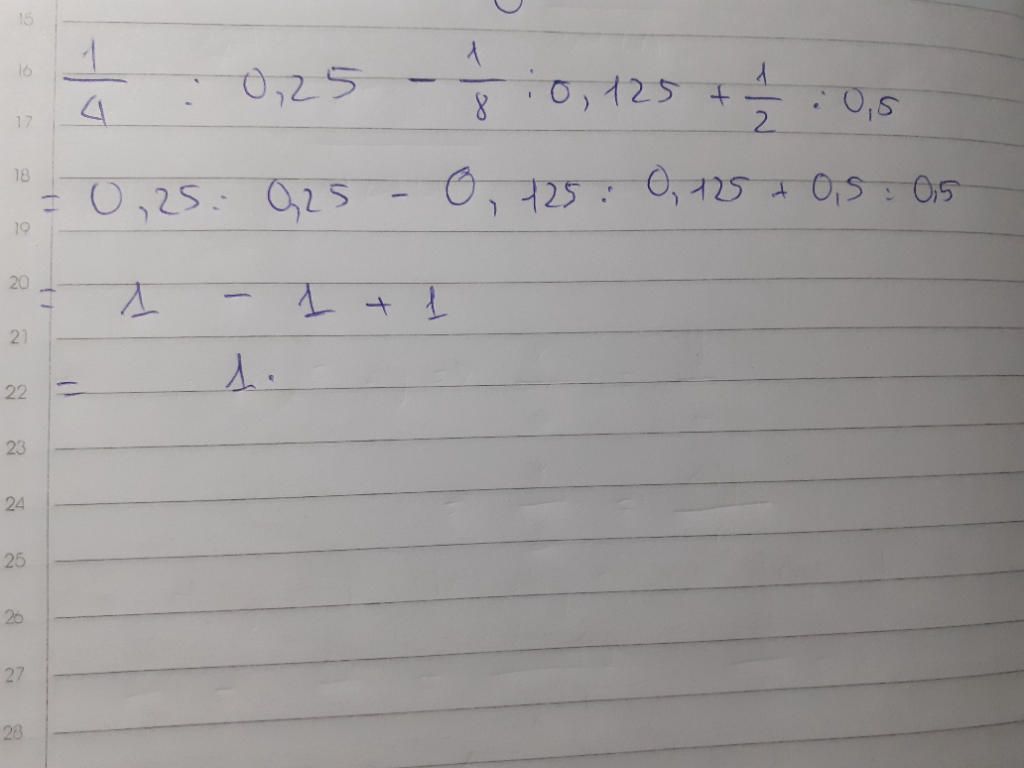 15
16 1/4 : 0,25 - 1/8 : 0,125 + 1/2 : 0,5
17
18 = 0,25 : 0,25 - 0,125 : 0,125 + 0,5 : 0,5
19
20 = 1 - 1 + 1
21
22 = 1.
23
24
25
26
27
28